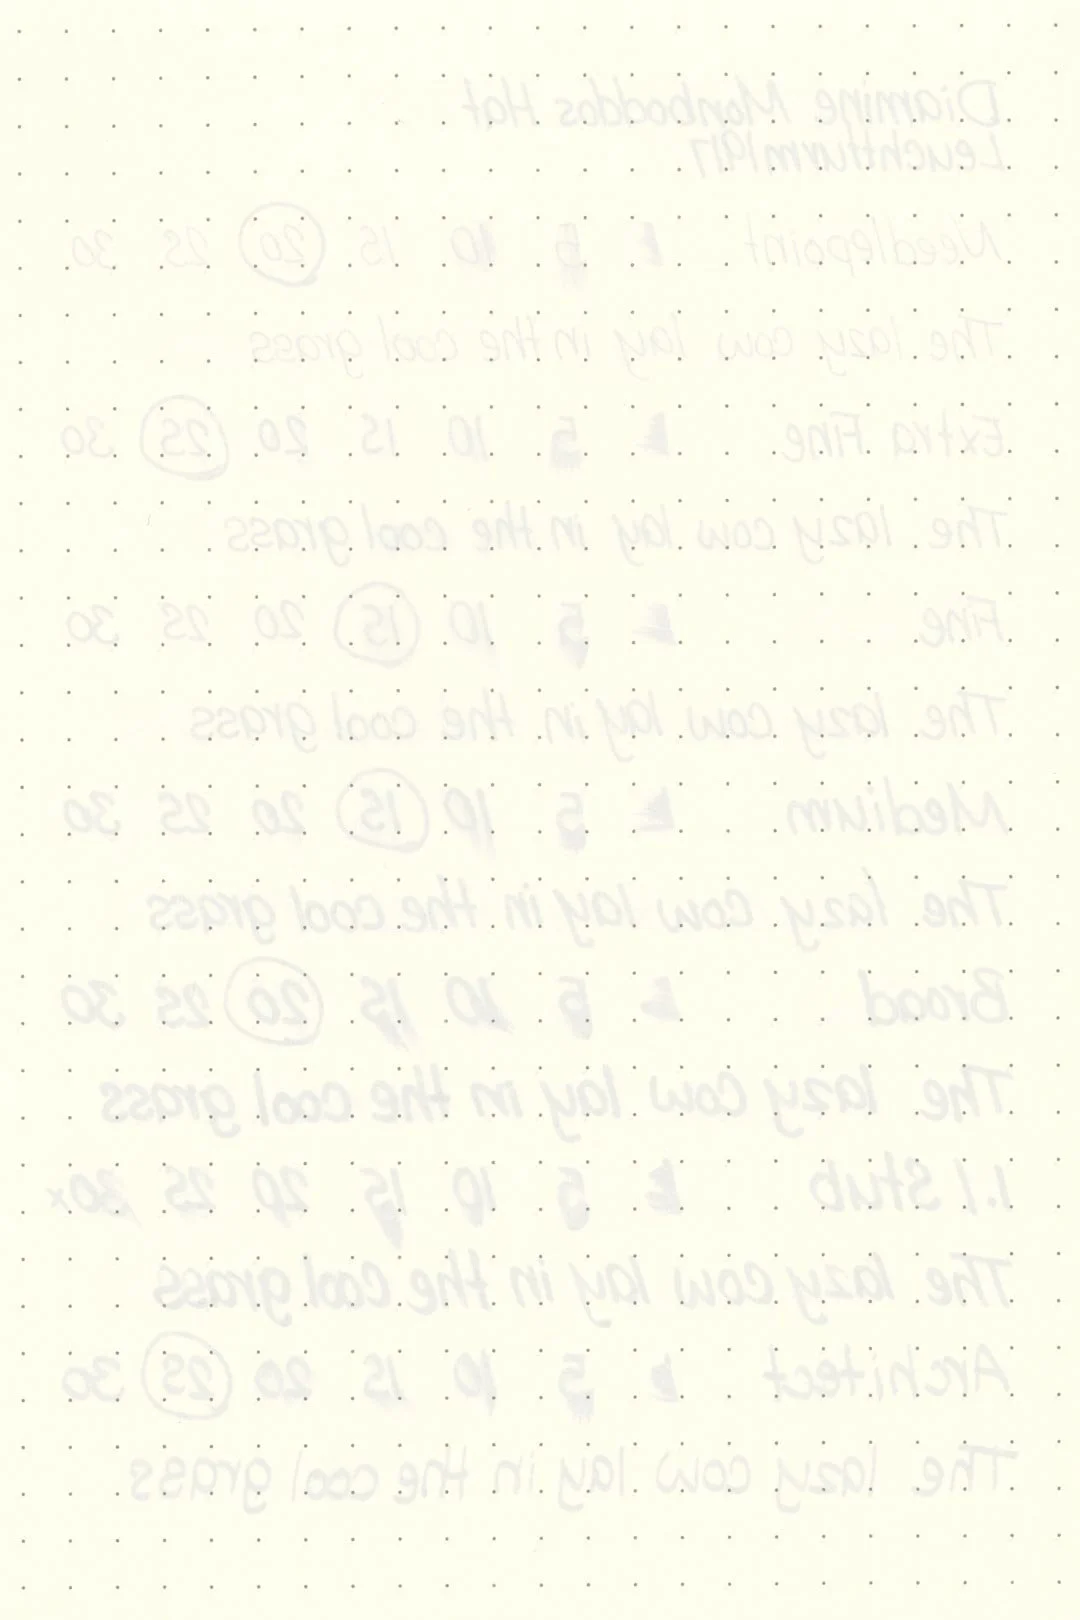 Diamine Monboddos Hat
Leuchtturm1917
Needlepoint 1 5 10 15 20 25 30
The lazy cow lay in the cool grass
Extra Fine 1 5 10 15 20 25 30
The lazy cow lay in the cool grass
Fine 1 5 10 15 20 25 30
The lazy cow lay in the cool grass
Medium 1 5 10 15 20 25 30
The lazy cow lay in the cool grass
Broad 1 5 10 15 20 25 30
The lazy cow lay in the cool grass
1.1 Stub 1 5 10 15 20 25 30x
The lazy cow lay in the cool grass
Architect 1 5 10 15 20 25 30
The lazy cow lay in the cool grass